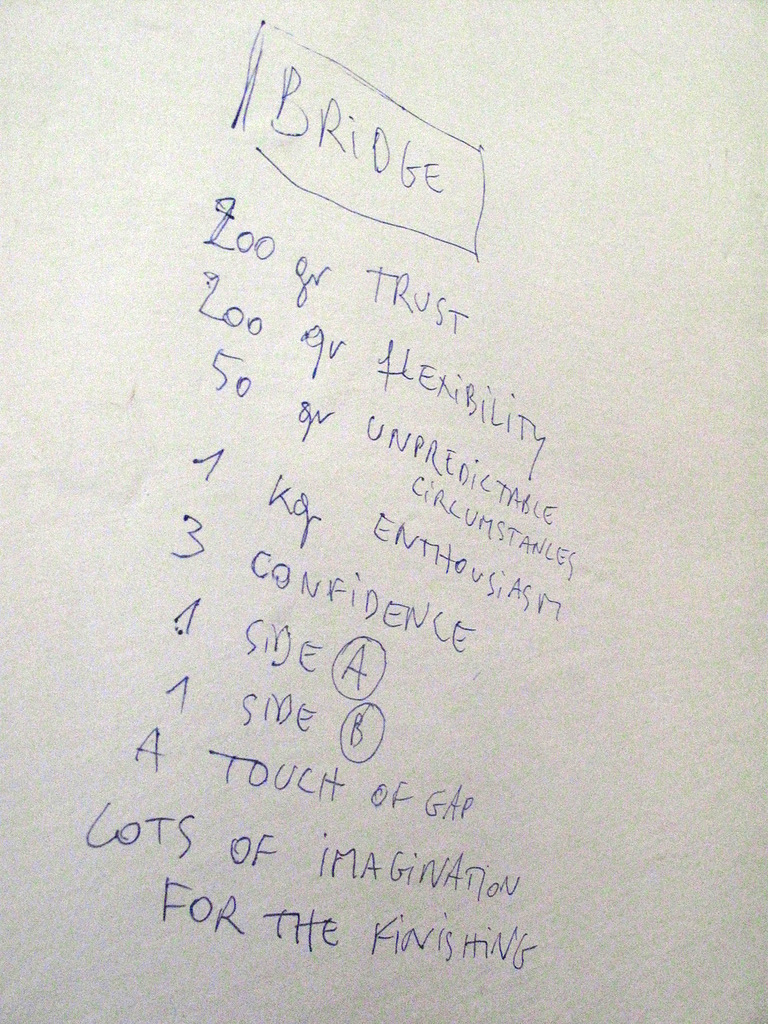 BRiDGE
200 gr TRUST
200 gr flEXiBiLiTY
50 gr UNPREDiCTABLE
CiRCUMSTANCES
1 Kg ENTHOUSiASM
3 CONFiDENCE
1 SiDE A
1 SiDE B
A TOUCH OF GAP
LOTS OF iMAGiNATiON
FOR THE FiNiSHiNG